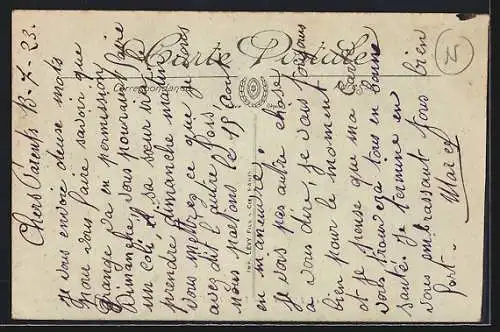 Carte Postale
Correspondance
Chers Parents 13-7-23.
Je vous envoie deuse mots
pour vous faire savoir que
ange va en permission
Dimanche vous pouriais faire
un coli. à sa sœur viendra le
prendre dimanche matin
Vous mettrez ce que je
avez dit l'autre fois
nous partons le 18 aout
en manœuvre.
Je vois pas autre chose
a vous dire, je vais toujours
bien pour le moment
et je pense que ma carte
vous trouvera tous en bonne
santé. Je termine en
vous embrassant tous bien
fort. Marcel
LEVY FILS & CIE PARIS